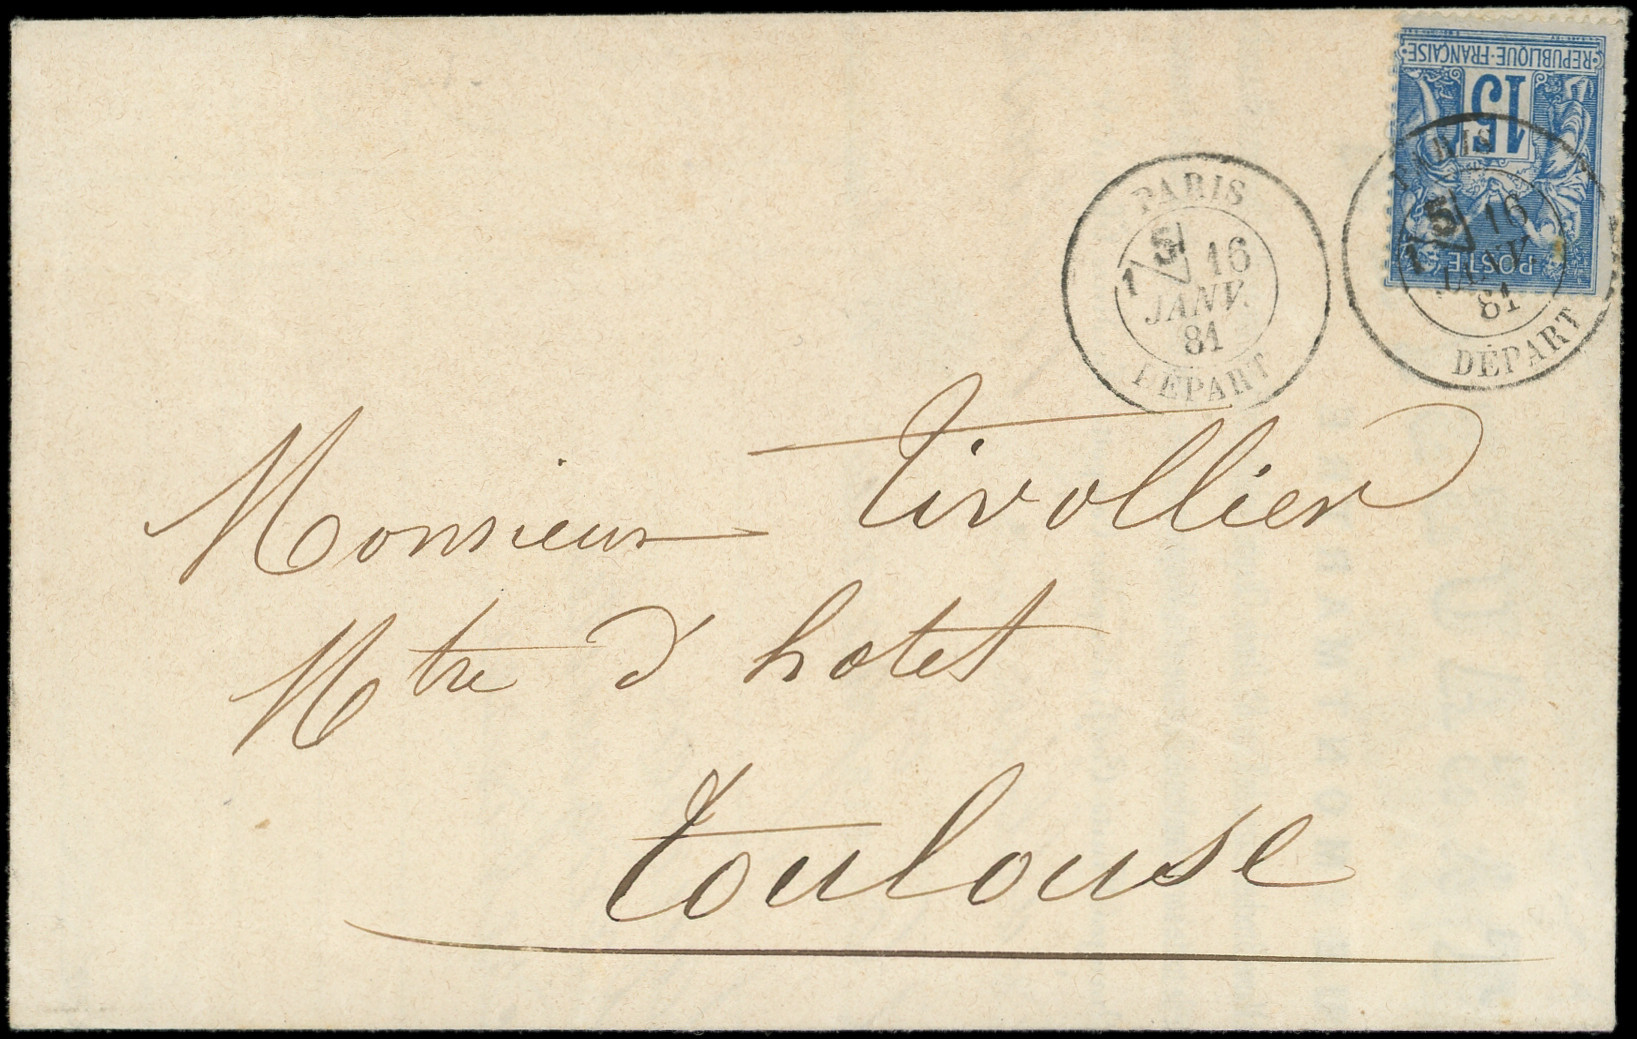 REPUBLIQUE-FRANÇAISE
15
POSTE
PARIS
1 5 16
JANV.
81
DÉPART
PARIS
1 5 16
JANV.
81
DÉPART
Monsieur Tivollier
Mtre d'hotel
Toulouse